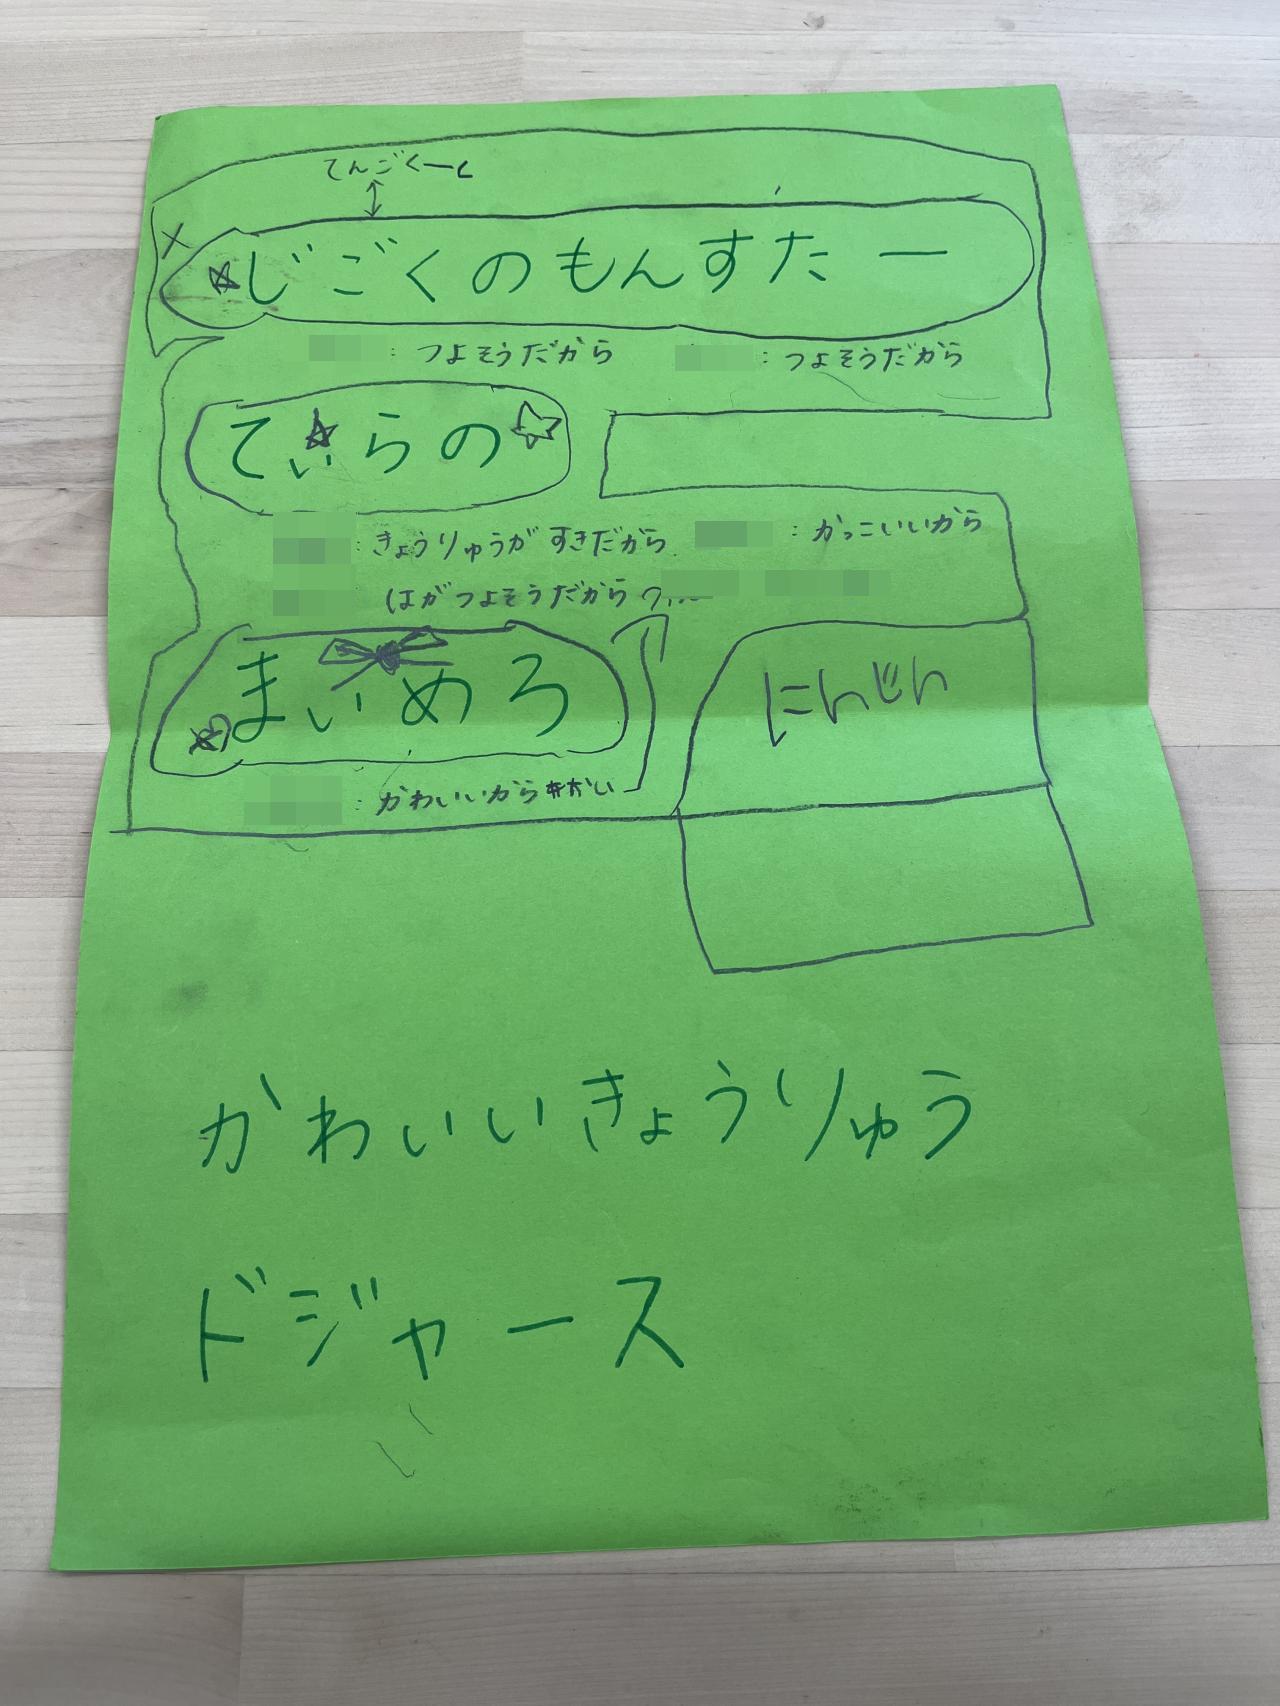 てんごくーく
じごくのもんすたー
: つよそうだから : つよそうだから
てぃらの
: きょうりゅうがすきだから : かっこいいから
はがつよそうだから
まいめろ
にんじん
: かわいいから
かわいいきょうりゅう
ドジャース